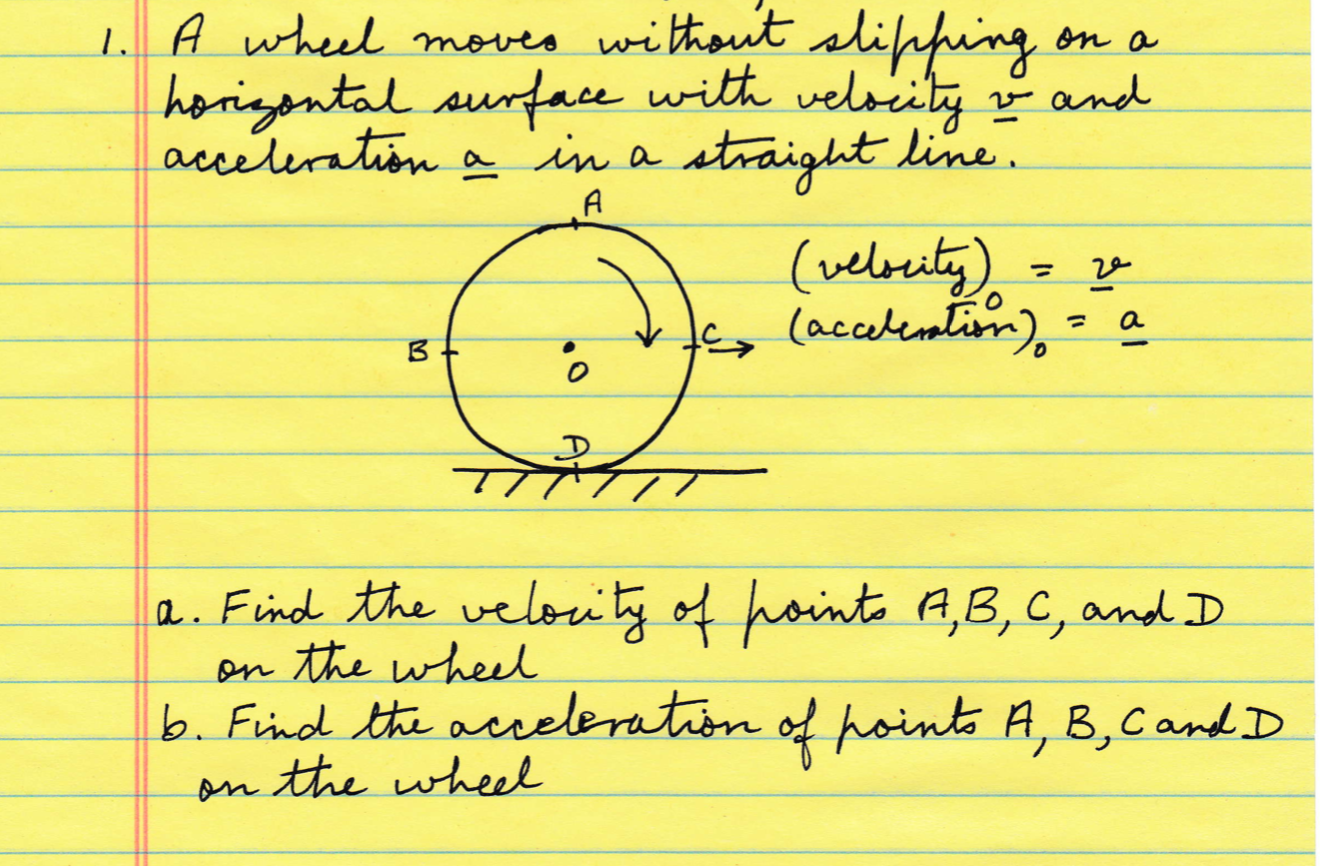 1. A wheel moves without slipping on a
horizontal surface with velocity v and
acceleration a in a straight line.
A
(velocity)₀ = v
(acceleration)₀ = a
B
C
O
D
a. Find the velocity of points A, B, C, and D
on the wheel
b. Find the acceleration of points A, B, C and D
on the wheel